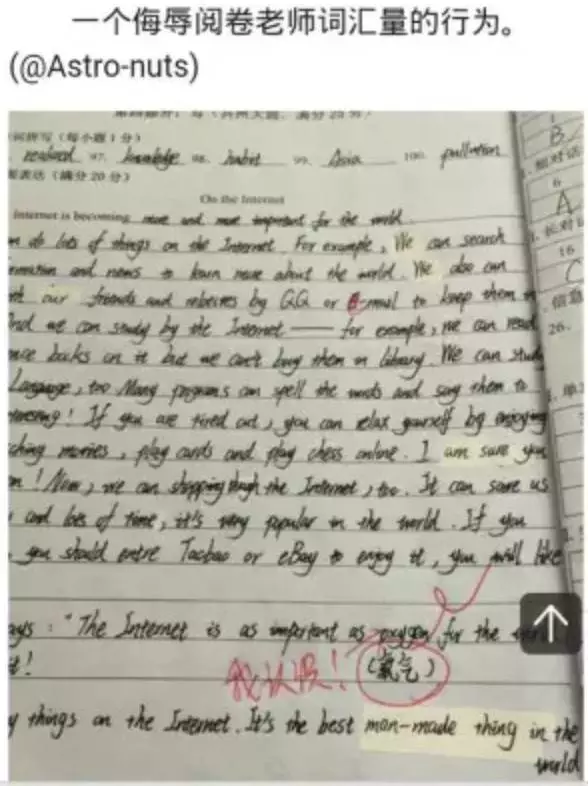 一个侮辱阅卷老师词汇量的行为。
(@Astro-nuts)
词拼写（每小题1分）
realized 97. knowledge 98. habit 99. Asia 100. pullution
表达（满分20分）
On the Internet
Internet is becoming more and more important for the world.
do lots of things on the Internet. For example, We can search
and news to learn more about the world. We also can
our friends and by QQ or E-mail to keep them in
And we can study by the Internet —— for example, we can read
books on it but we can't buy them in library. We can study
Language, too Many pograms can spell the words and say them to
! If you are tired out, you can relax yourself by enjoying
movies, play cards and play chess online. I am sure you
! Now, we can shopping the Internet, too. It can save us
and lots of time, it's very popular in the world. If you
you should entre Taobao or eBay to enjoy it, you will like
: "The Internet is as important as oxygen for the
!
我认识！
(氧气)
things on the Internet. It's the best man-made thing in the
world
B
A
16
C
26.